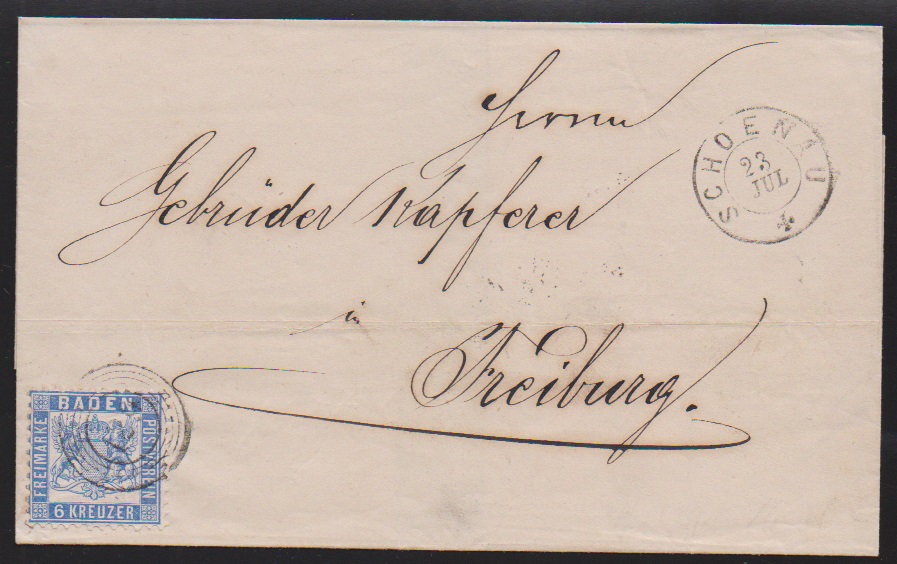 Herrn
Gebrüder Kapferer
in
Freiburg.
SCHOENAU
23
JUL
BADEN
FREIMARKE
POSTVEREIN
6 KREUZER